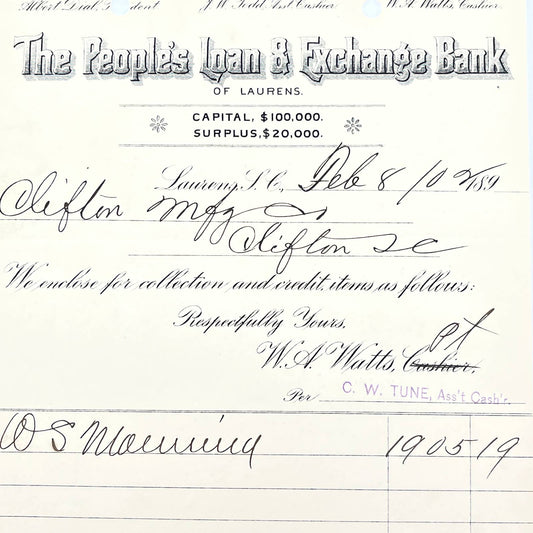 Albert Dial, dent J. W. Todd Ass't Cashier W. A. Watts, Cashier.
The People's Loan & Exchange Bank
OF LAURENS.
CAPITAL, $100,000.
SURPLUS, $20,000.
Laurens, S. C., Feb 8 / 02 189
Clifton Mfg Co
Clifton SC
We enclose for collection and credit, items as follows:
Respectfully Yours,
W. A. Watts, Cashier.
Per C. W. TUNE, Ass't Cash'r.
W S Manning 1905 19